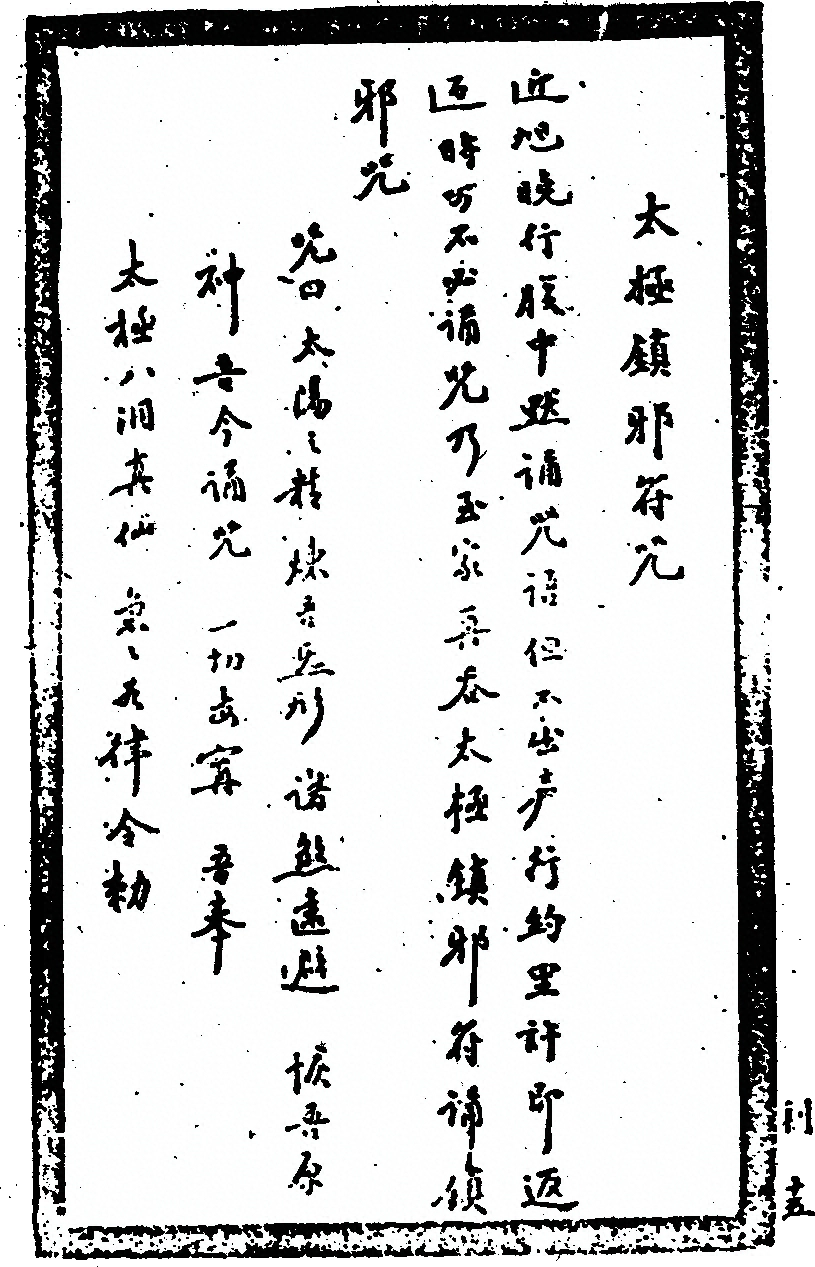 太極鎮邪符咒
近旭晚行腹中默誦咒語但不出声行約里許即返
返時亦不必誦咒乃至家再吞太極鎮邪符誦鎮
邪咒
咒曰 太陽之精 煉吾形 諸煞遠避 恢吾原
神 吾今誦咒 一切安寧 吾奉
太極八洞真仙 急急如律令勅
利 十五